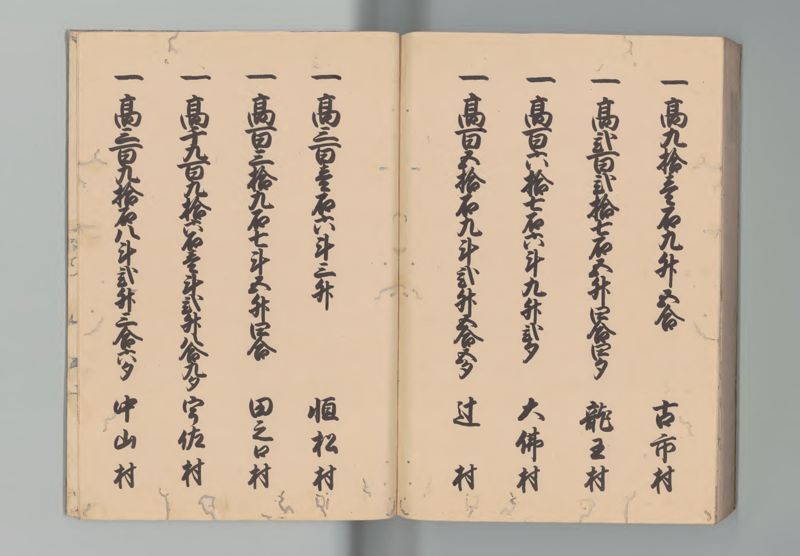 一高九拾壱石九升五合 古市村
一高弐百弐拾七石五升四合四夕 龍王村
一高百六拾七石六斗九升弐夕 大佛村
一高百五拾石九斗弐升五合五夕 辻村
一高三百壱石六斗三升 恒松村
一高百三拾九石七斗五升四合 田之口村
一高千九百九拾六石壱斗弐升八合九夕 宇佐村
一高三百九拾石八斗弐升三合六夕 中山村